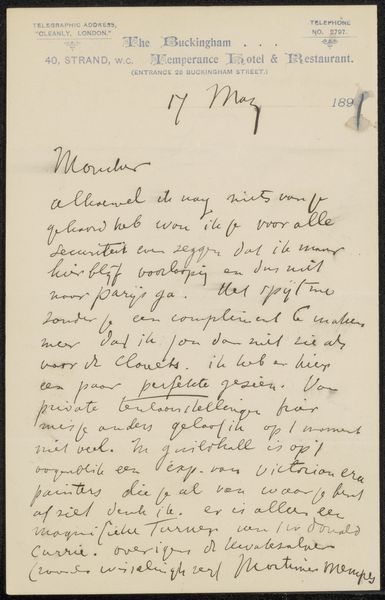 TELEGRAPHIC ADDRESS,
"CLEANLY, LONDON."
TELEPHONE
NO. 2797.
The Buckingham . . .
40, STRAND, W.C. Temperance Hotel & Restaurant.
(ENTRANCE 28 BUCKINGHAM STREET.)
17 May 189
Moncher
alhoewel ik nog niets van je
gehoord heb wou ik je voor alle
securiteit even zeggen dat ik maar
hier blijf voorloopig en dus niet
naar Parijs ga. Het spijt me
zonder je een compliment te maken
meer dat ik jou dan niet zie als
voor de Clouets. ik heb er hier
een paar perfekte gezien. Van
private tentoonstellingen
anders geloof ik op 't moment
niet veel. In guildhall is op 't
oogenblik een exp. van Victorian era
painters die je al van
af ziet denk ik. er is alleen een
magnifieke Turner van Sir Donald
Currie. overigens de kwakzalver
Mortimer Mempes